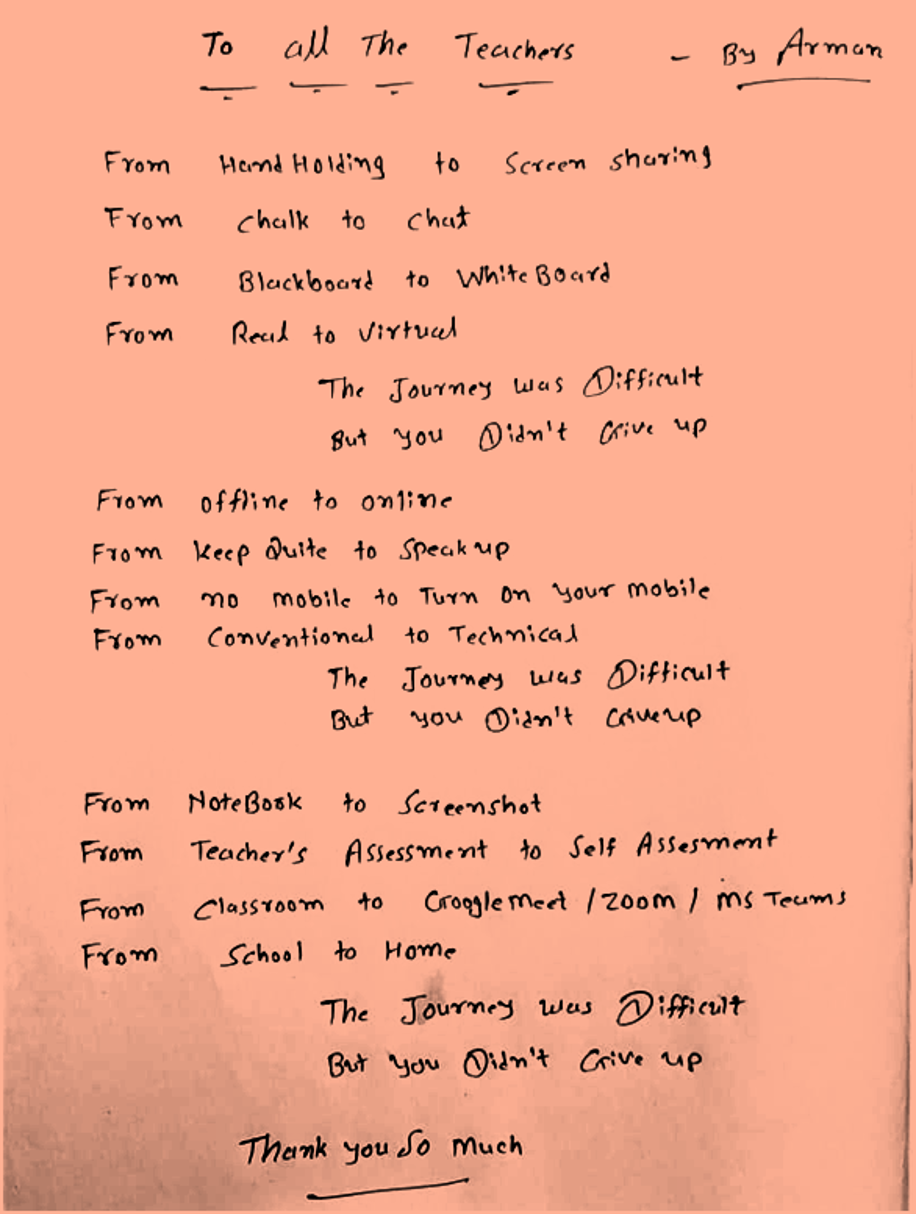 To all The Teachers - By Arman
From Hand Holding to Screen sharing
From Chalk to Chat
From Blackboard to White Board
From Real to Virtual
The Journey was Difficult
But you Didn't Give up
From offline to online
From Keep Quite to Speak up
From no mobile to Turn On your mobile
From Conventional to Technical
The Journey was Difficult
But you Didn't Give up
From NoteBook to Screenshot
From Teacher's Assessment to Self Assesment
From Classroom to Google meet / Zoom / ms Teams
From School to Home
The Journey was Difficult
But you Didn't Give up
Thank you So Much